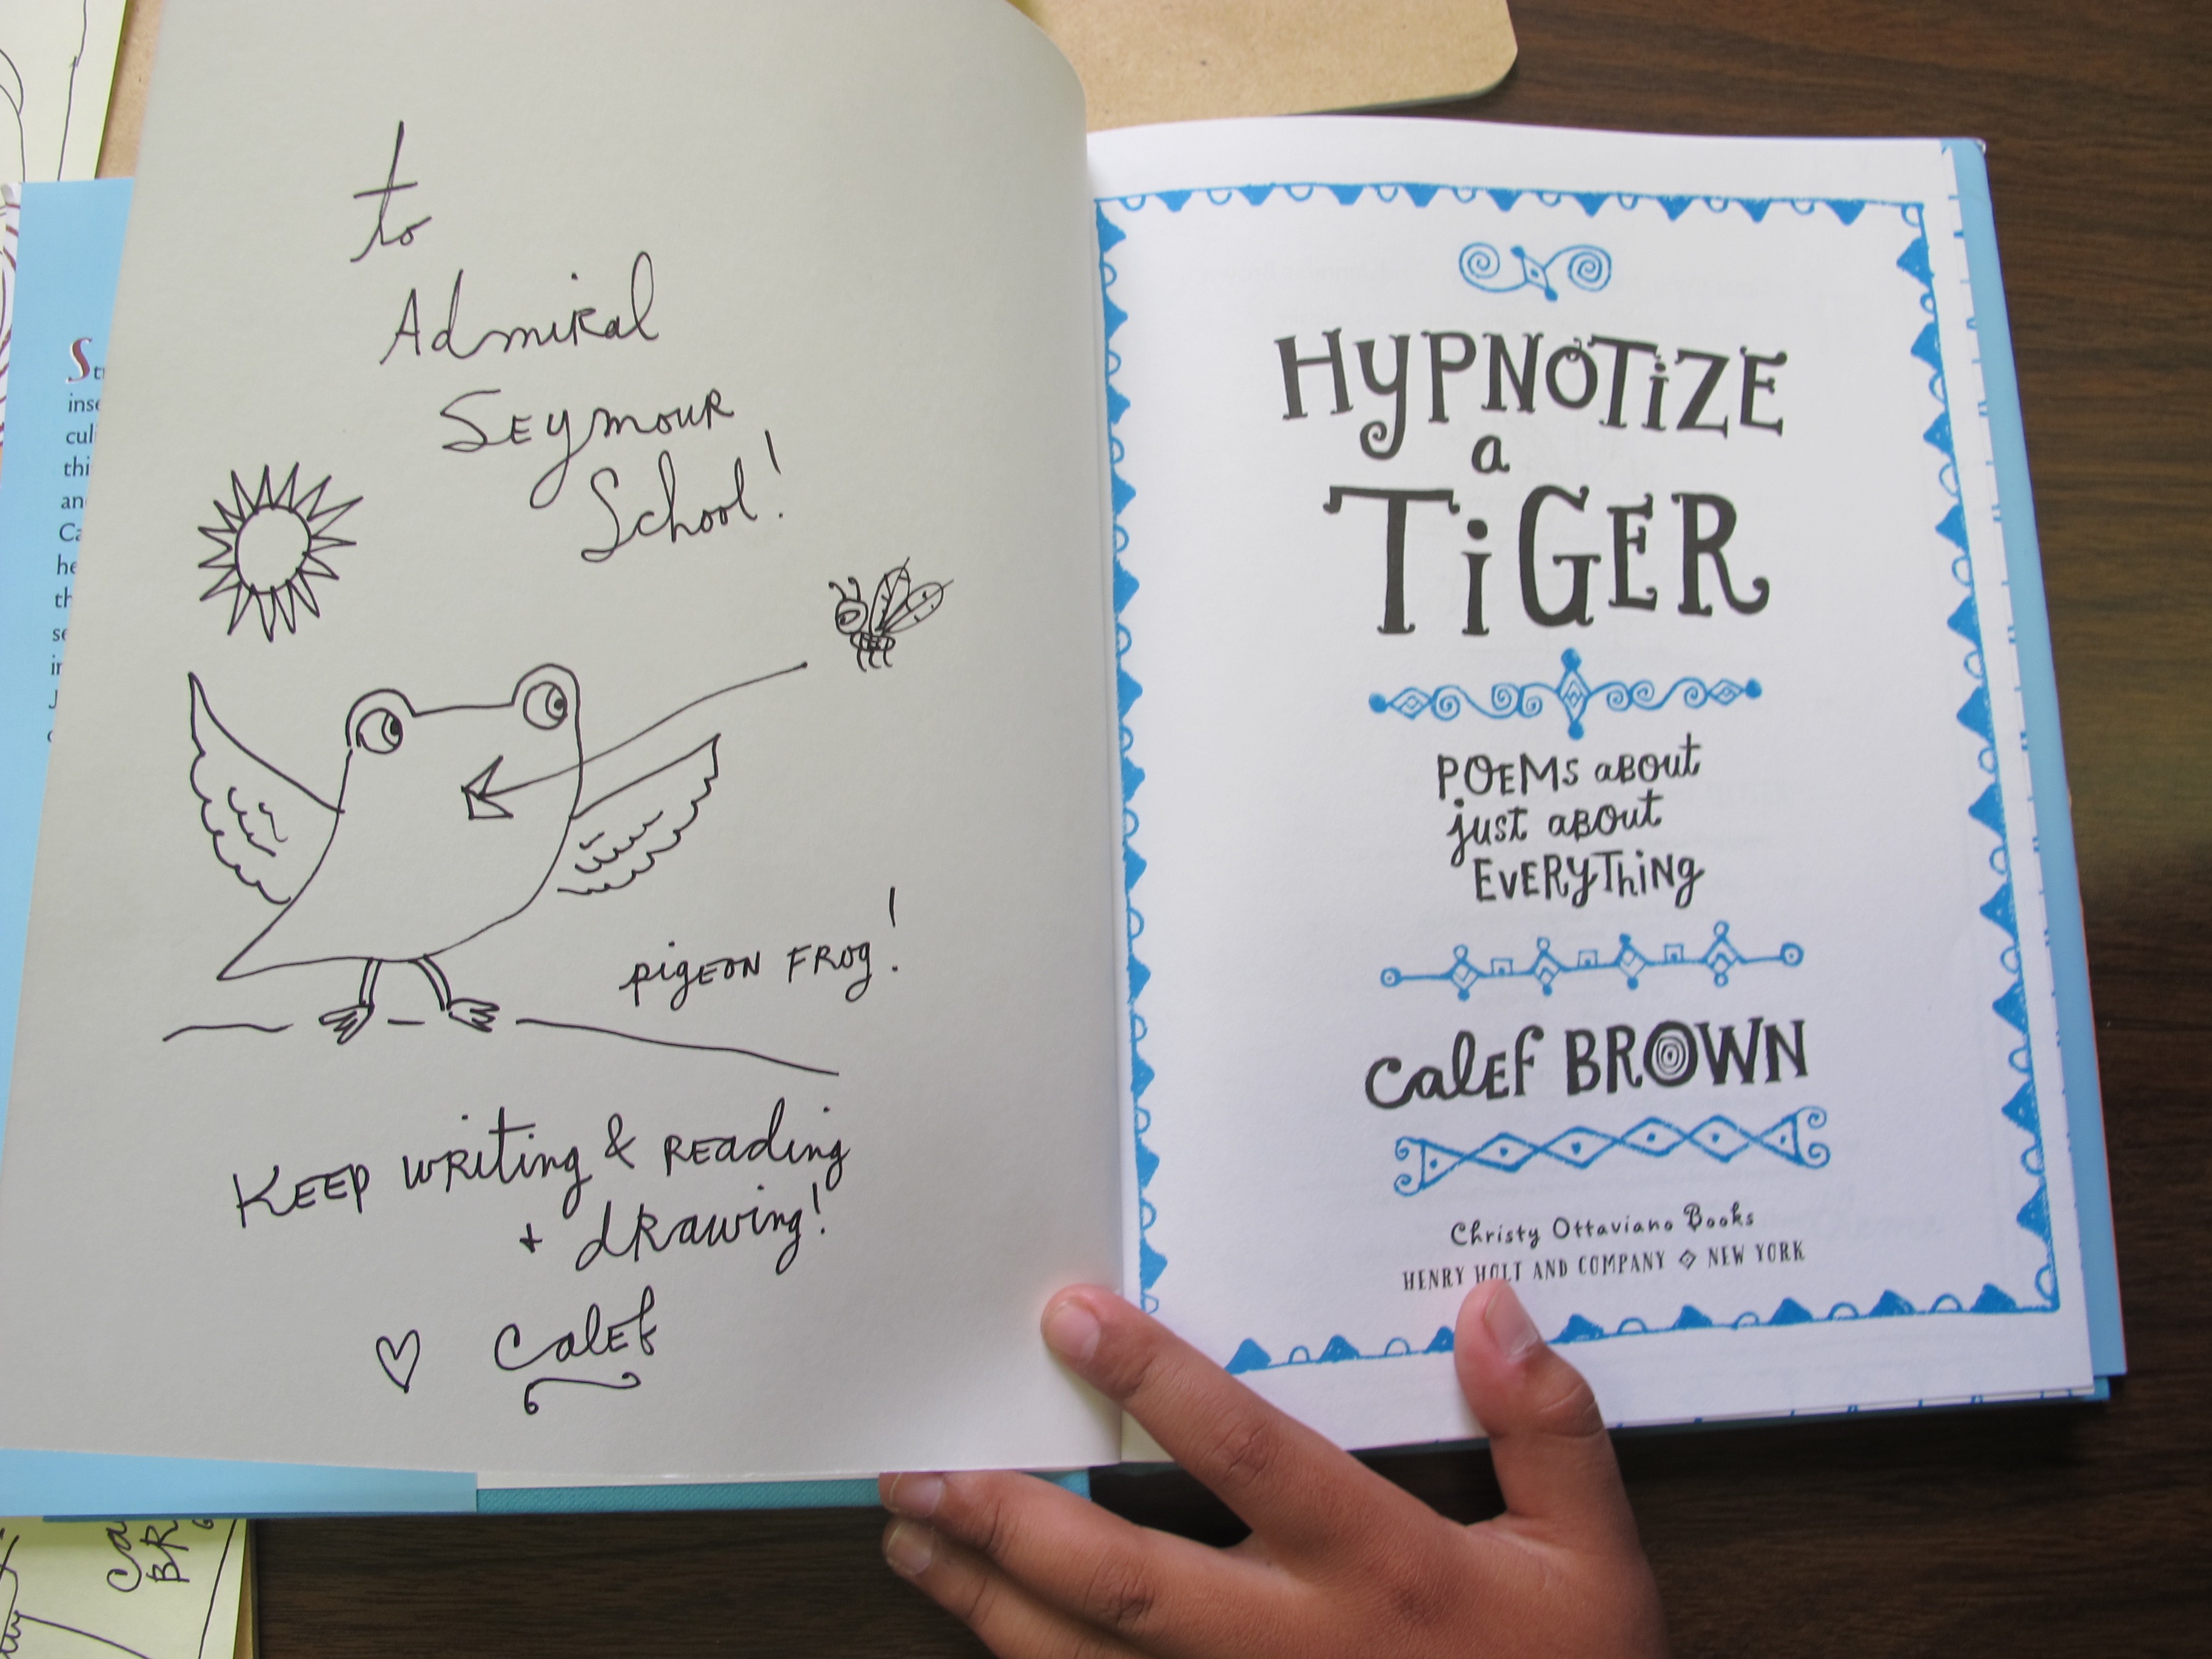 to
Admiral
Seymour
School!
pigeon FROg!
KEEP wRiting & REAding
+ dRawing!
Calef
HyPNOTiZE
a
TiGER
POEMS aBOUt
just aBOUt
EVERYThiNg
CalEf BROWN
Christy Ottaviano Books
HENRY HOLT AND COMPANY NEW YORK
S
inse
cul
thi
an
Ca
he
th
se
in
J
Ca
BR